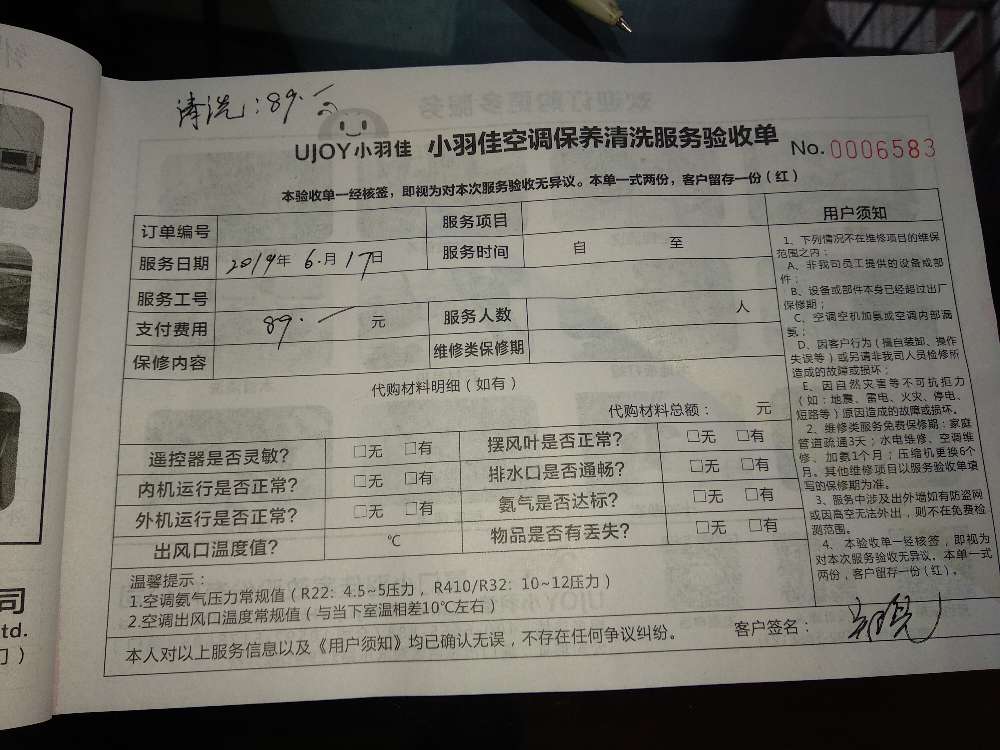 清洗：89.—
UJOY小羽佳 小羽佳空调保养清洗服务验收单 No.0006583
本验收单一经核签，即视为对本次服务验收无异议。本单一式两份，客户留存一份（红）
订单编号 服务项目
服务日期 2019年6.月17日 服务时间 自 至
服务工号
支付费用 89.— 元 服务人数 人
保修内容 维修类保修期
代购材料明细（如有）
代购材料总额： 元
遥控器是否灵敏? □无 □有 摆风叶是否正常? □无 □有
内机运行是否正常? □无 □有 排水口是否通畅? □无 □有
外机运行是否正常? □无 □有 氨气是否达标? □无 □有
出风口温度值? ℃ 物品是否有丢失? □无 □有
温馨提示：
1.空调氨气压力常规值（R22: 4.5~5压力，R410/R32: 10~12压力）
2.空调出风口温度常规值（与当下室温相差10℃左右）
本人对以上服务信息以及《用户须知》均已确认无误，不存在任何争议纠纷。 客户签名：
用户须知
1、下列情况不在维修项目的维保
范围之内：
A、非我司员工提供的设备或部
件；
B、设备或部件本身已经超过出厂
保修期；
C、空调空机加氨或空调内部漏
氨；
D、因客户行为（擅自装卸、操作
失误等）或另请非我司人员检修所
造成的故障或损坏；
E、因自然灾害等不可抗拒力
（如：地震、雷电、火灾、停电、
短路等）原因造成的故障或损坏。
2、维修类服务免费保修期：家庭
管道疏通3天；水电维修、空调维
修、加氨1个月；压缩机更换6个
月。其他维修项目以服务验收单填
写的保修期为准。
3、服务中涉及出外墙如有防盗网
或因高空无法外出，则不在免费检
测范围。
4、本验收单一经核签，即视为
对本次服务验收无异议。本单一式
两份，客户留存一份（红）。
司
td.
门）